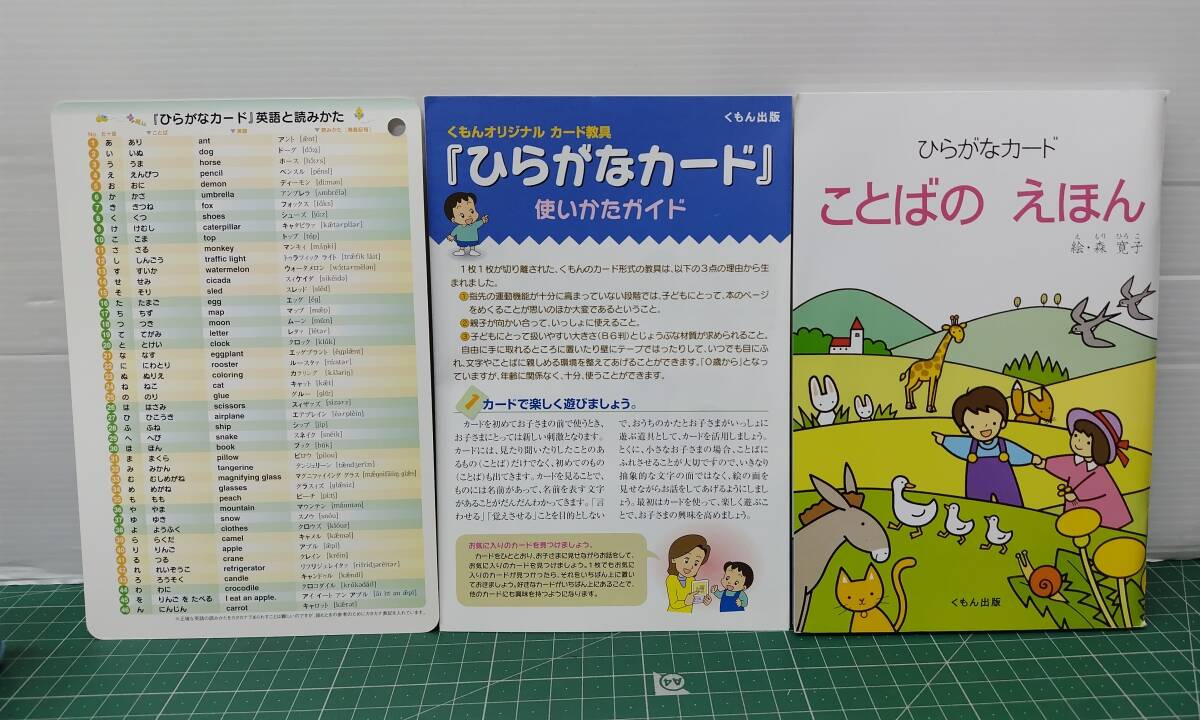 『ひらがなカード』英語と読みかた
No. 五十音 ▼ことば ▼英語 ▼読みかた
1 あ あり ant アント [ǽnt]
2 い いぬ dog ドーグ
3 う うま horse ホース
4 え えんぴつ pencil ペンスル
5 お おに demon ディーモン
6 か かさ umbrella アンブレラ
7 き きつね fox フォックス
8 く くつ shoes シューズ
9 け けむし caterpillar キャタピラァ
10 こ こま top トップ
11 さ さる monkey マンキィ
12 し しんごう traffic light トゥラフィック ライト
13 す すいか watermelon ウォータメロン
14 せ せみ cicada スィケイダ
15 そ そり sled スレッド
16 た たまご egg エッグ
17 ち ちず map マップ
18 つ つき moon ムーン
19 て てがみ letter レタァ
20 と とけい clock クロック
21 な なす eggplant エッグプラント
22 に にわとり rooster ルースタァ
23 ぬ ぬりえ coloring カラリング
24 ね ねこ cat キャット
25 の のり glue グルー
26 は はさみ scissors スィザァズ
27 ひ ひこうき airplane エアプレイン
28 ふ ふね ship シップ
29 へ へび snake スネイク
30 ほ ほん book ブック
31 ま まくら pillow ピロウ
32 み みかん tangerine タンジェリーン
33 む むしめがね magnifying glass マグニファイイング グラス
34 め めがね glasses グラスィズ
35 も もも peach ピーチ
36 や やま mountain マウンテン
37 ゆ ゆき snow スノウ
38 よ ようふく clothes クロウズ
39 ら らくだ camel キャメル
40 り りんご apple アプル
41 る つる crane クレイン
42 れ れいぞうこ refrigerator リフリジュレイタァ
43 ろ ろうそく candle キャンドゥル
44 わ わに crocodile クロコダイル
45 を りんご を たべる I eat an apple. アイ イート アン アプル
46 ん にんじん carrot キャロット
くもん出版
くもんオリジナル カード教具
『ひらがなカード』
使いかたガイド
1枚1枚が切り離された、くもんのカード形式の教具は、以下の3点の理由から生
まれました。
①指先の運動機能が十分に高まっていない段階では、子どもにとって、本のページ
をめくることが思いのほか大変であるということ。
②親子が向かい合って、いっしょに使えること。
③子どもにとって扱いやすい大きさ(B6判)とじょうぶな材質が求められること。
自由に手に取れるところに置いたり壁にテープではったりして、いつでも目にふ
れ、文字やことばに親しめる環境を整えてあげることができます。「0歳から」となっ
ていますが、年齢に関係なく、十分、使うことができます。
1 カードで楽しく遊びましょう。
カードを初めてお子さまの前で使うとき、
お子さまにとっては新しい刺激となります。
カードには、見たり聞いたりしたことのあ
るもの(ことば)だけでなく、初めてのもの
(ことば)も出てきます。カードを見ることで、
ものには名前があって、名前を表す文字
があることがだんだんわかってきます。「言
わせる」「覚えさせる」ことを目的としない
で、おうちのかたとお子さまがいっしょに
遊ぶ道具として、カードを活用しましょう。
とくに、小さなお子さまの場合、ことばに
ふれさせることが大切ですので、いきなり
抽象的な文字の面ではなく、絵の面を
見せながらお話をしてあげるようにしましょ
う。最初はカードを使って、楽しく遊ぶこ
とで、お子さまの興味を高めましょう。
お気に入りのカードを見つけましょう。
カードをひととおり、お子さまに見せながらお話をして、
お気に入りのカードを見つけましょう。1枚でもお気に
入りのカードが見つかったら、それをいちばん上に置い
ておきましょう。好きなカードがいちばん上にあることで、
他のカードにも興味を持つようになります。
ひらがなカード
ことばの えほん
絵・森 寛子
え もり ひろ こ
くもん出版
A4